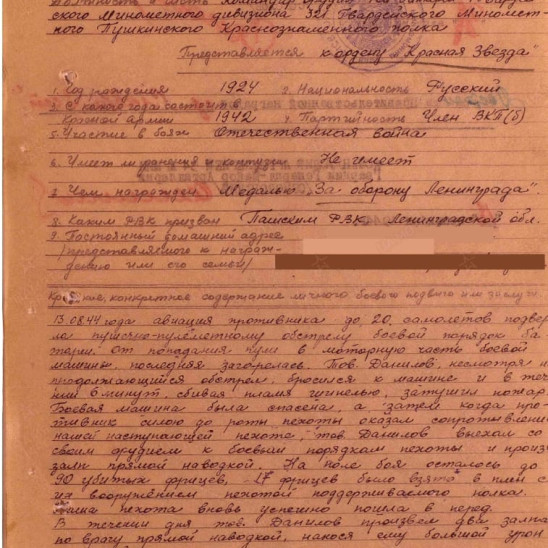 Должность и часть командир орудия
ского Минометного дивизиона 321 Гвардейского Миномет-
ного Пушкинского Краснознаменного полка
Представляется к ордену "Красная Звезда"
1. Год рождения 1924 2. Национальность Русский
3. С какого года состоит в
Красной Армии 1942 4. Партийность Член ВКП(б)
5. Участие в боях Отечественная война
6. Имеет ли ранения и контузии Не имеет
7. Чем награжден Медалью "За оборону Ленинграда".
8. Каким РВК призван Пашским РВК Ленинградской обл.
9. Постоянный домашний адрес
/представляемого к награж-
дению или его семьи/
Краткое, конкретное содержание личного боевого подвига или заслуги
13.08.44 года авиация противника до 20 самолетов подвер
гла пушечно-пулеметному обстрелу боевой порядок ба
тареи. От попадания пули в моторную часть боевой
машины, последняя загорелась. Тов. Данилов, несмотря н
продолжающийся обстрел, бросился к машине и в тече
нии 6 минут, сбивая пламя шинелью, затушил пожар.
Боевая машина была спасена, а затем когда про-
тивник силою до роты пехоты оказал сопротивлени
нашей наступающей пехоте, тов. Данилов выехал со
своим орудием к боевым порядкам пехоты и произв
залп прямой наводкой. На поле боя осталось до
90 убитых фрицев, 17 фрицев было взято в плен с
их вооружением пехотой поддерживаемого полка.
Наша пехота вновь успешно пошла в перед.
В течении дня тов. Данилов произвел два залпа
по врагу прямой наводкой, нанося ему большой урон